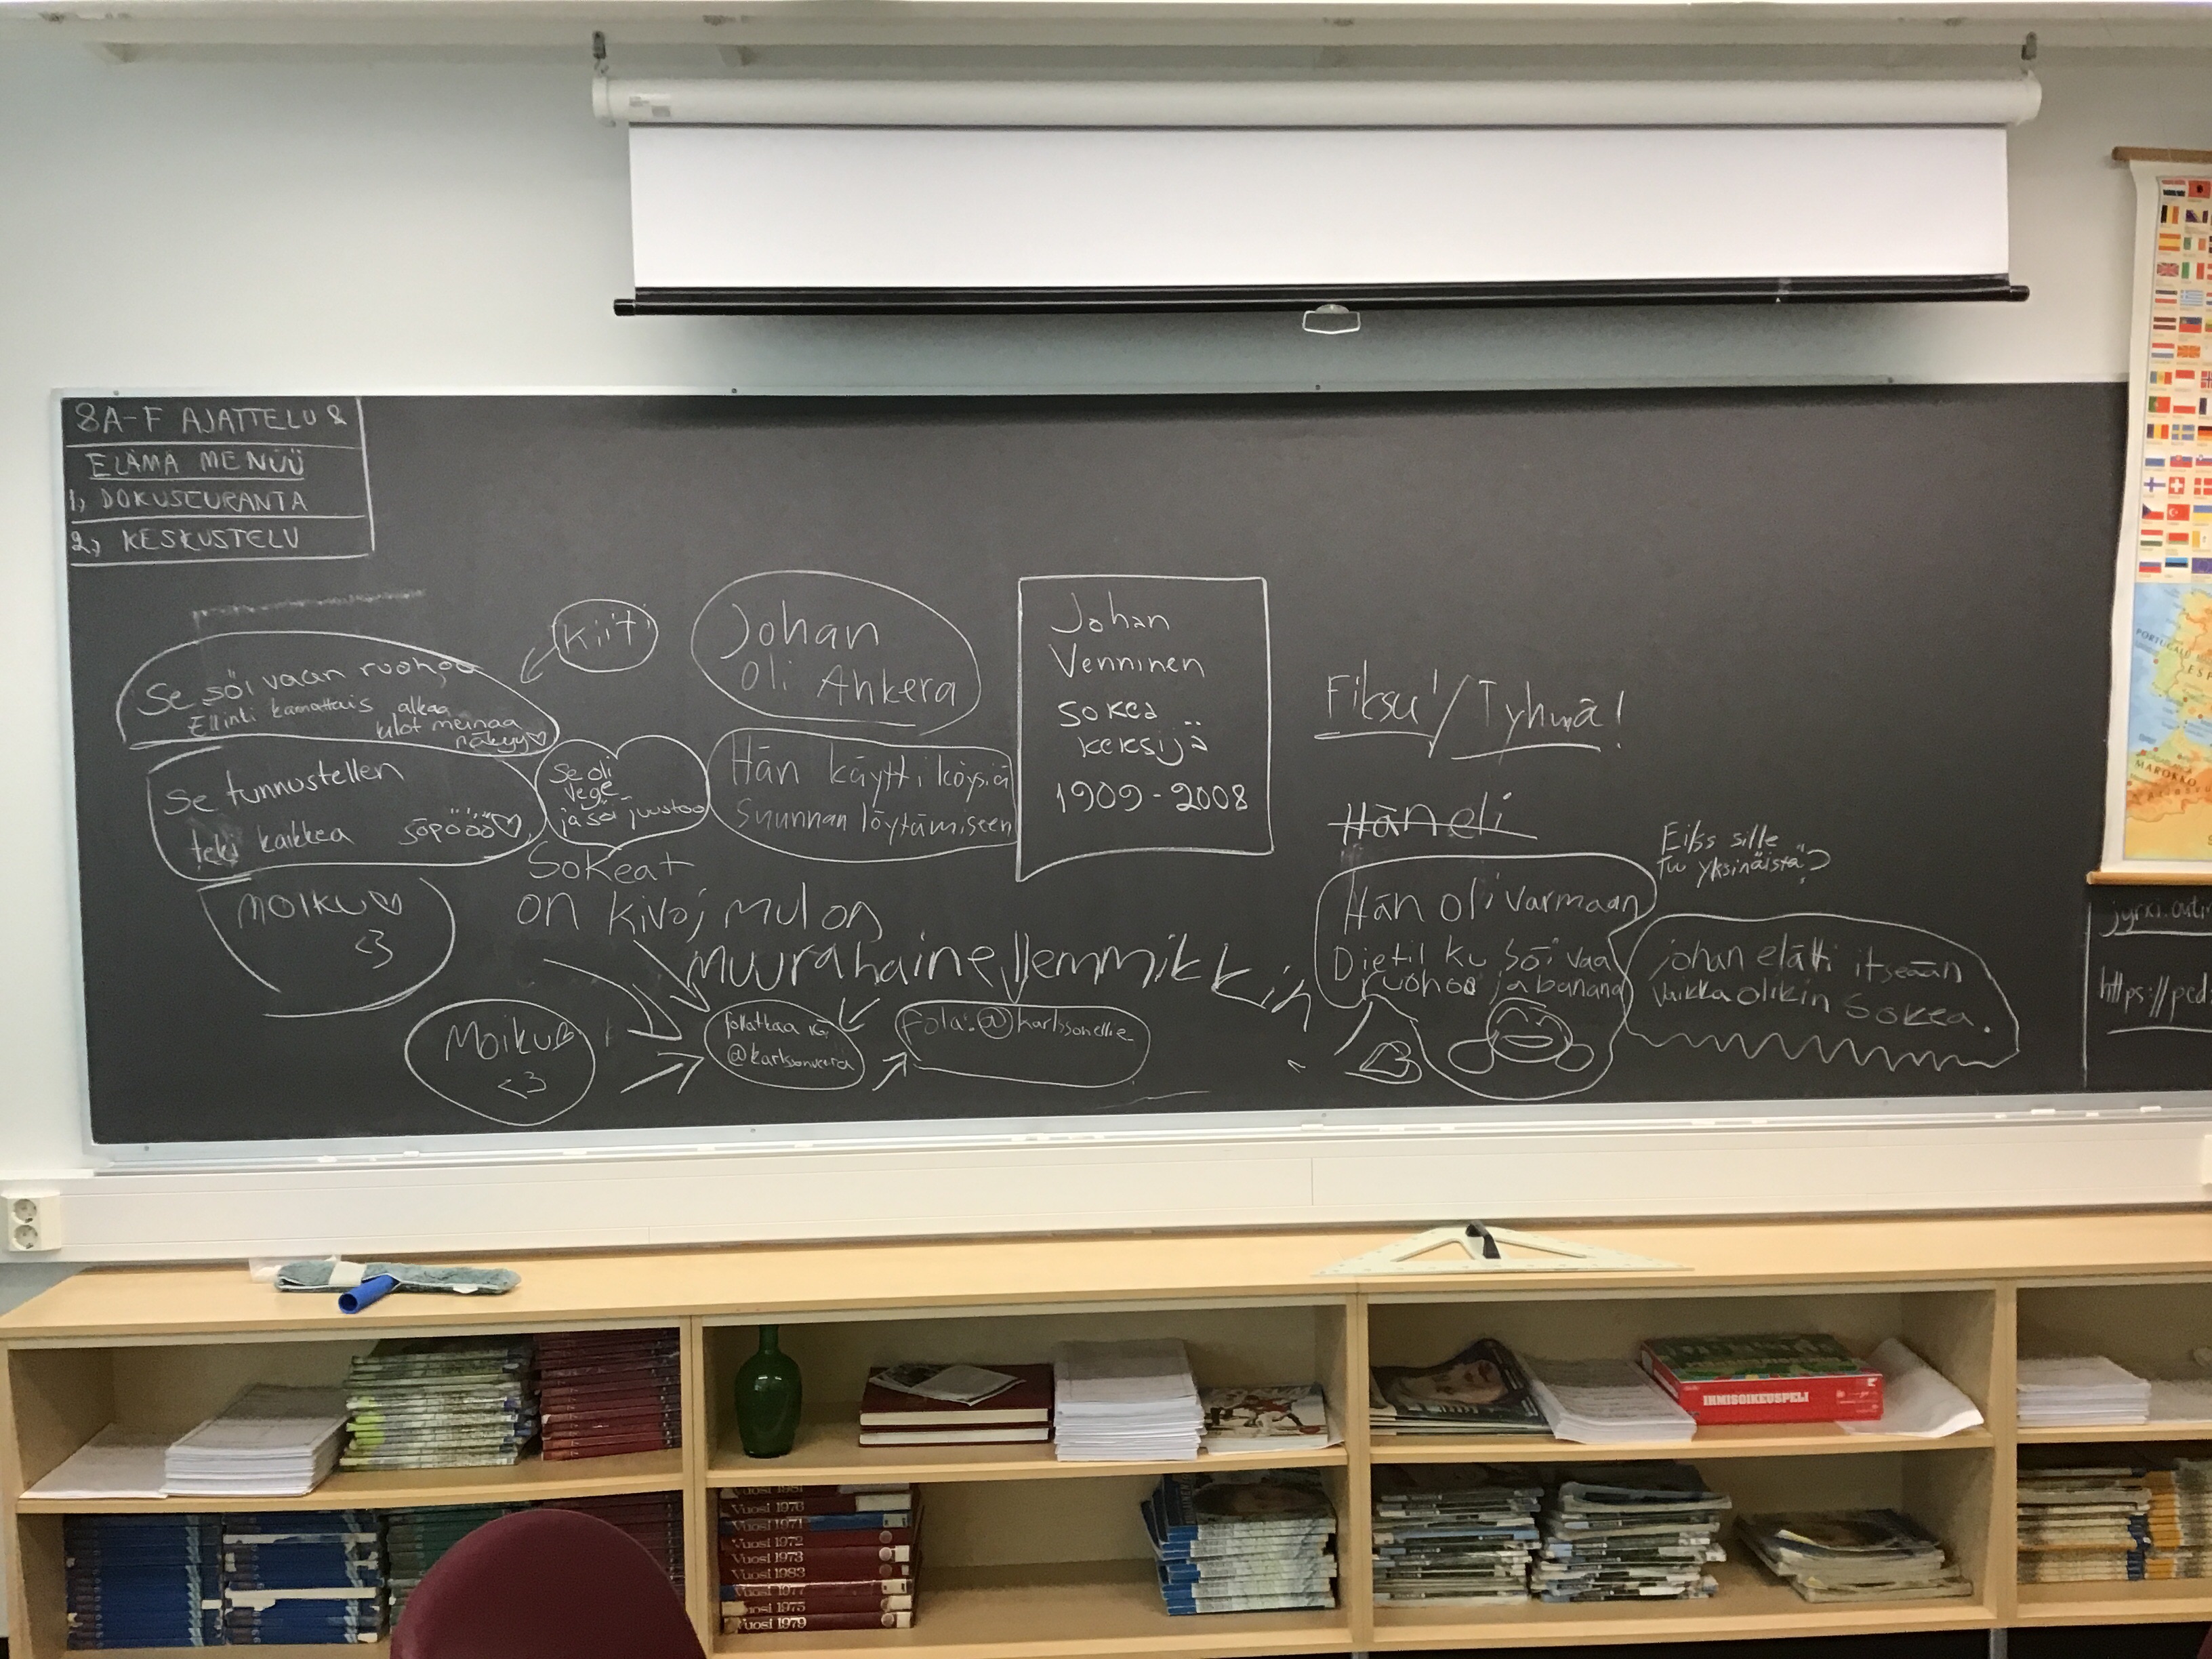 8A-F AJATTELU &
ELÄMÄ MENÜÜ
1, DOKUSEURANTA
2, KESKUSTELU
Se söi vaan ruohoo
Ellinki kannattais alkaa
kilot meinaa
näkyy♡
Kiiti
Se tunnustellen
teki kaikkea söpööö♡
Se oli
vege
ja söi juustoo
Johan
oli Ahkera
Hän käytti köysiä
Suunnan löytämiseen
Johan
Venninen
sokea
keksijä
1909-2008
Fiksu!/Tyhmä!
Hän eli
Eiks sille
tuu yksinäistä?
Hän oli varmaan
Dietil ku söi vaa
ruohoo ja banana
johan elätti itseään
vaikka olikin sokea.
MOIKU♡
<3
Sokeat
on kivoj mul on
muurahainelemmikkin
Moiku♡
<3
follatkaa ig:
Fola: @karlssonellie_
https://ped
MAROKKO
IHMISOIKEUSPELI
Vuosi 1981
Vuosi 1976
Vuosi 1971
Vuosi 1972
Vuosi 1973
Vuosi 1983
Vuosi 1977
Vuosi 1975
Vuosi 1979